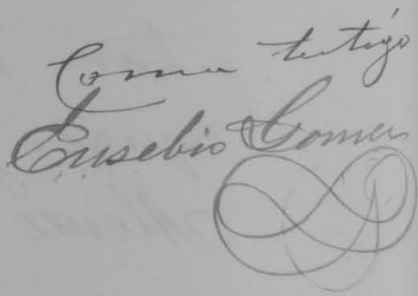 Como testigo
Eusebio Gomez